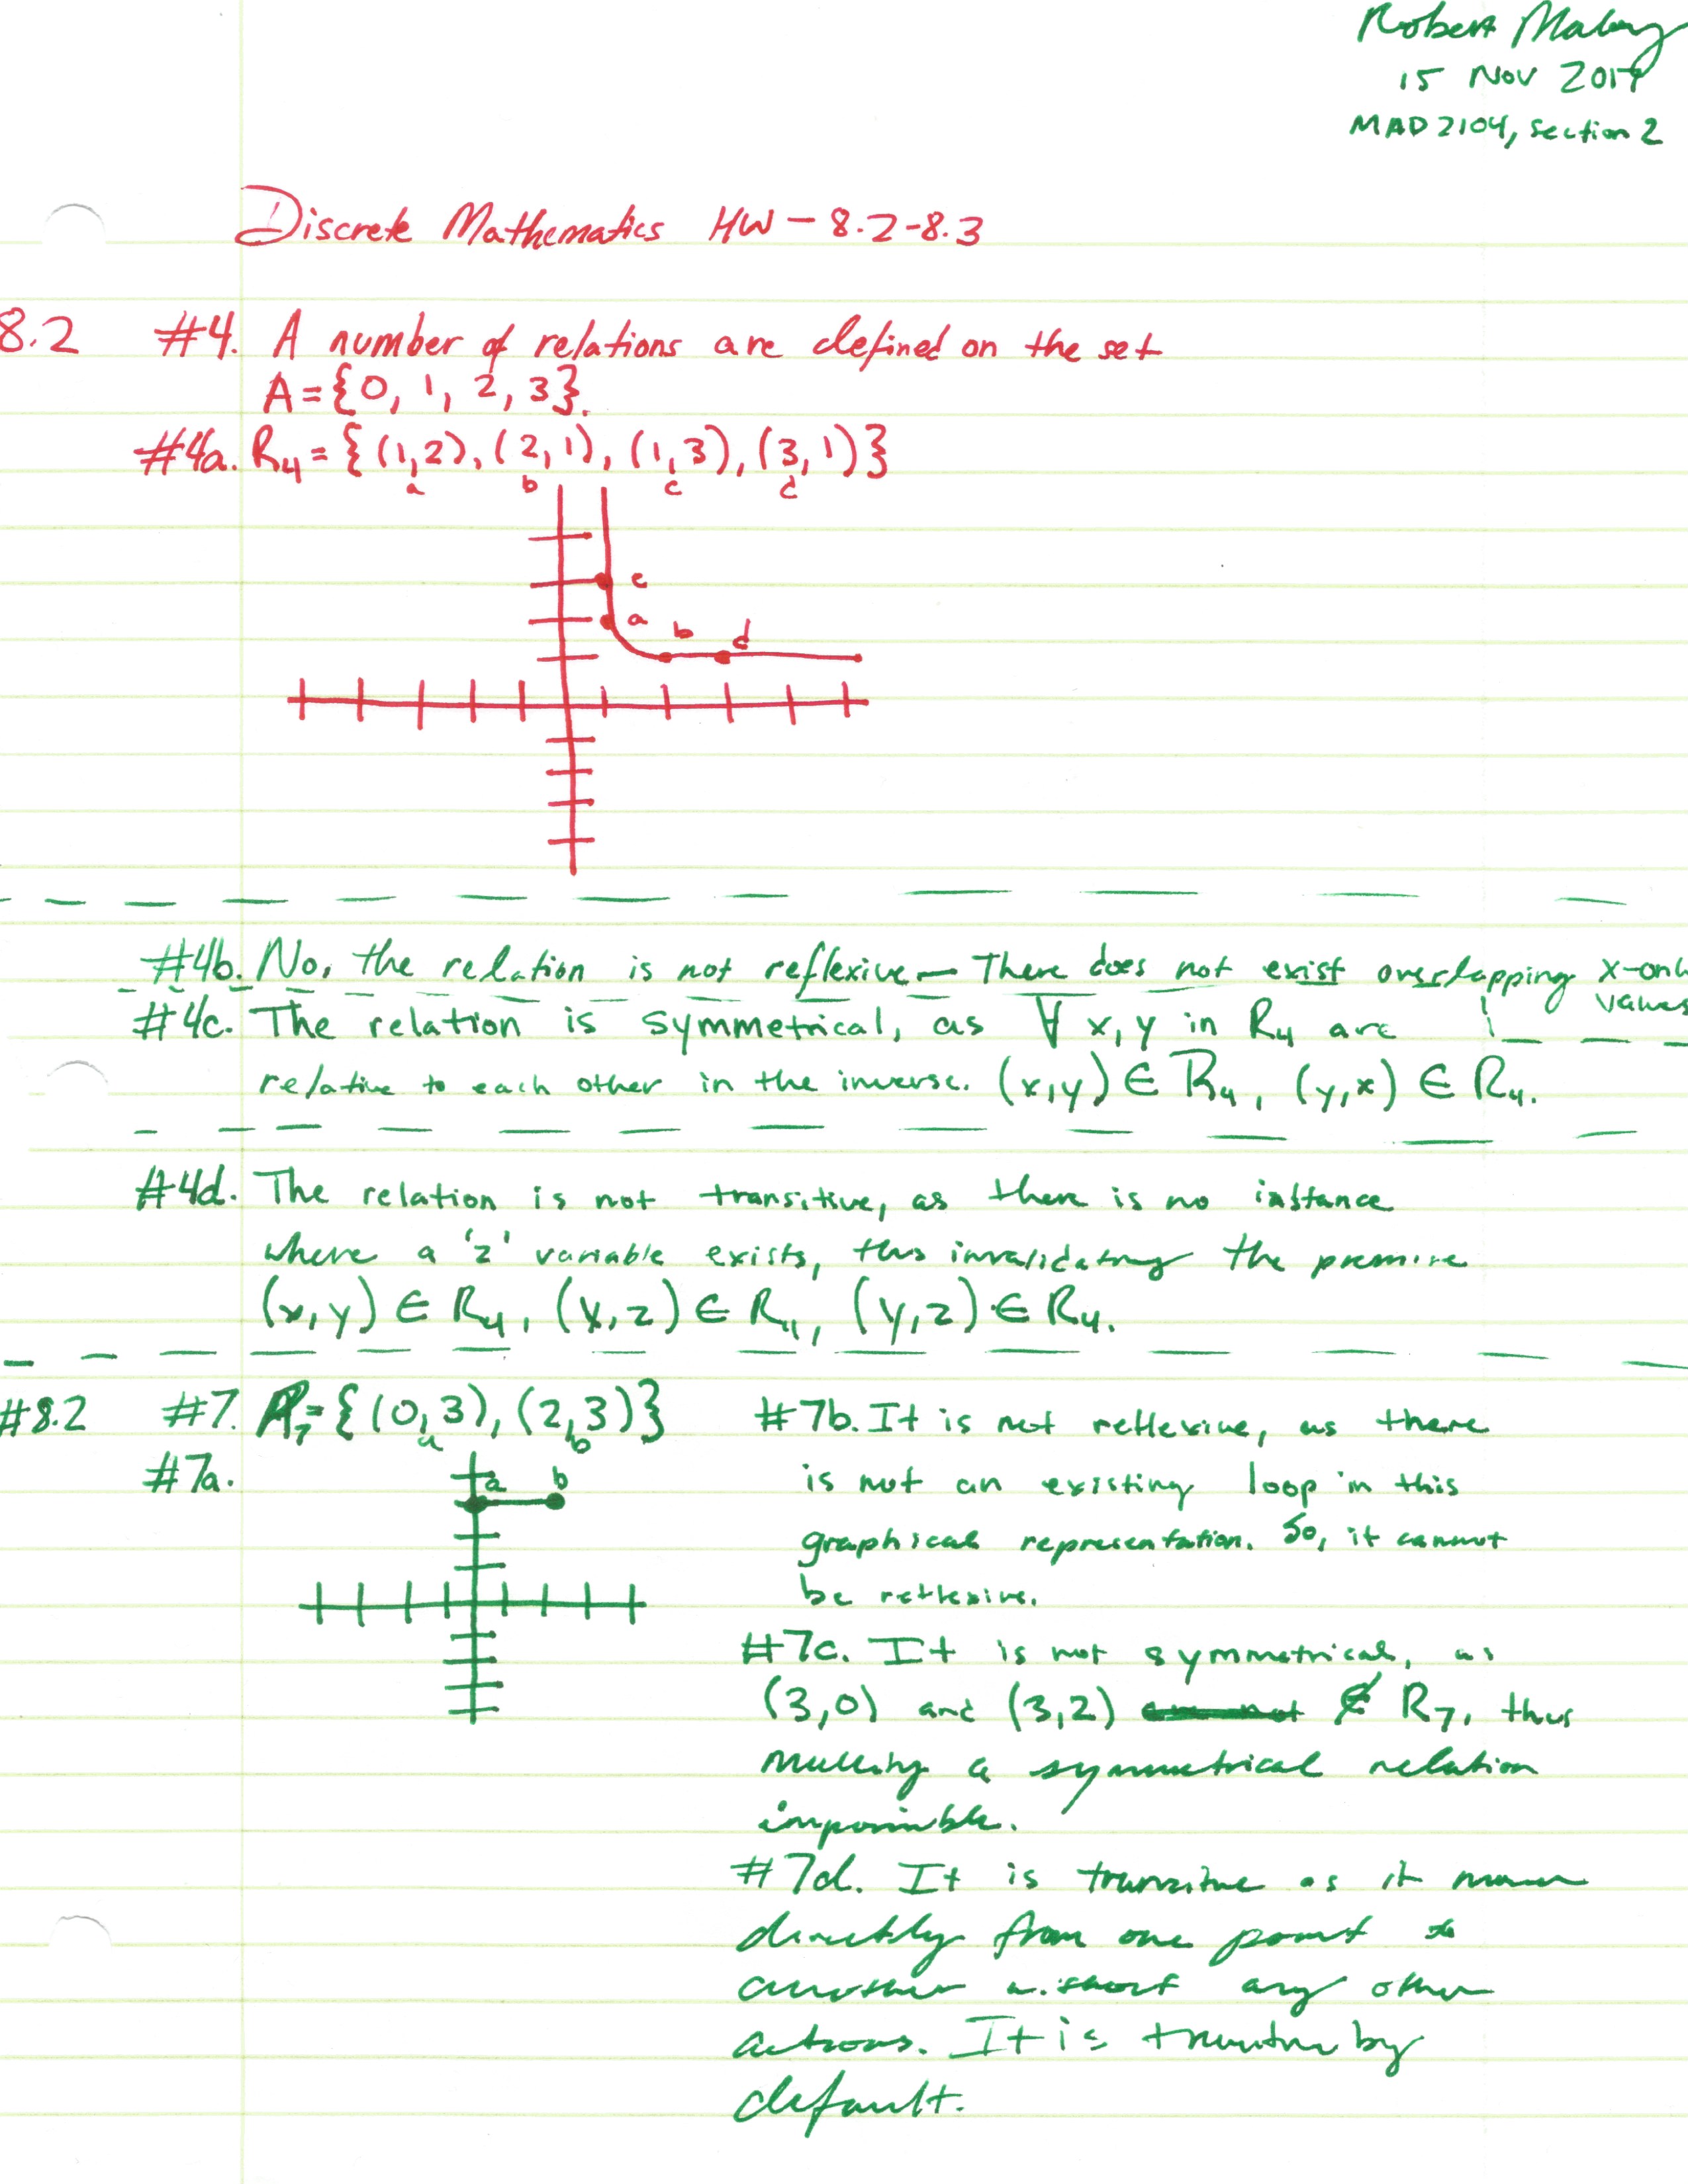 Robert Malay
15 Nov 2017
MAD 2104, section 2
Discrete Mathematics HW - 8.2-8.3
8.2 #4. A number of relations are defined on the set
A = {0, 1, 2, 3}.
#4a. R₄ = {(1,2), (2,1), (1,3), (3,1)}
a b c d
c
a
b d
#4b. No, the relation is not reflexive - There does not exist overlapping x-only
values
#4c. The relation is symmetrical, as ∀ x, y in R₄ are
relative to each other in the inverse. (x,y) ∈ R₄, (y,x) ∈ R₄.
#4d. The relation is not transitive, as there is no instance
where a 'z' variable exists, thus invalidating the premise
(x,y) ∈ R₄, (x,z) ∈ R₄, (y,z) ∈ R₄.
#8.2 #7. R₇ = {(0,3), (2,3)}
a b
#7a.
a b
#7b. It is not reflexive, as there
is not an existing loop in this
graphical representation. So, it cannot
be reflexive.
#7c. It is not symmetrical, as
(3,0) and (3,2) ∉ R₇, thus
a symmetrical relation
impossible.
#7d. It is transitive as it moves
directly from one point to
another without any other
actions. It is transitive by
default.